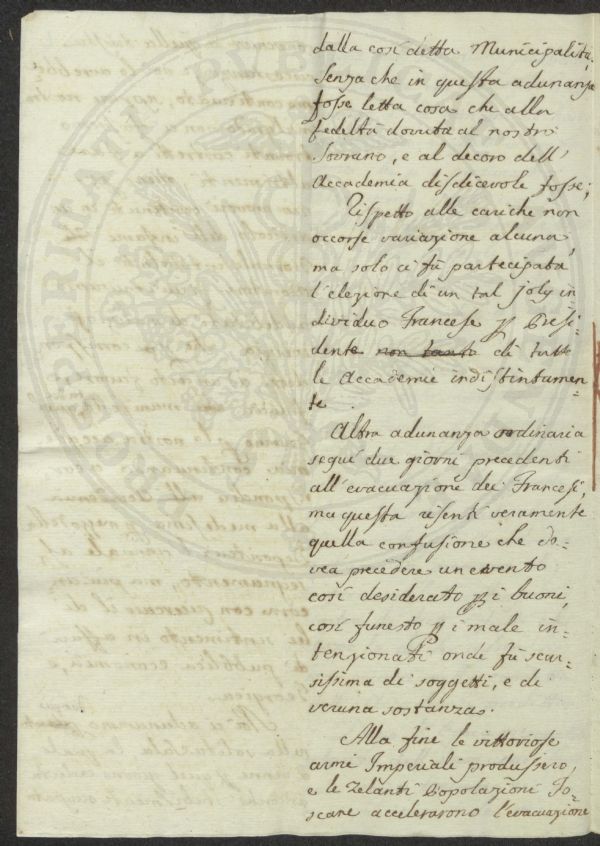 dalla così detta Municipalità,
senza che in questa adunanza
fosse letta cosa che alla
fedeltà dovuta al nostro
Sovrano, e al decoro dell'
Accademia disdicevole fosse;
Rispetto alle cariche non
occorse variazione alcuna,
ma solo ci fù partecipata
l'elezione di un tal Joly in=
dividuo Francese p Presi=
dente non tanto di tutte
le Accademie indistintamen=
te.
Altra adunanza ordinaria
seguì due giorni precedenti
all'evacuazione dei Francesi,
ma questa risentì veramente
quella confusione che do=
vea precedere un evento
così desiderato p i buoni,
così funesto p i male in=
tenzionati onde fù scar=
sissima di soggetti, e di
veruna sostanza.
Alla fine le vittoriose
armi Imperiali produssero,
e le zelanti Popolazioni To=
scane accelerarono l'evacuazione